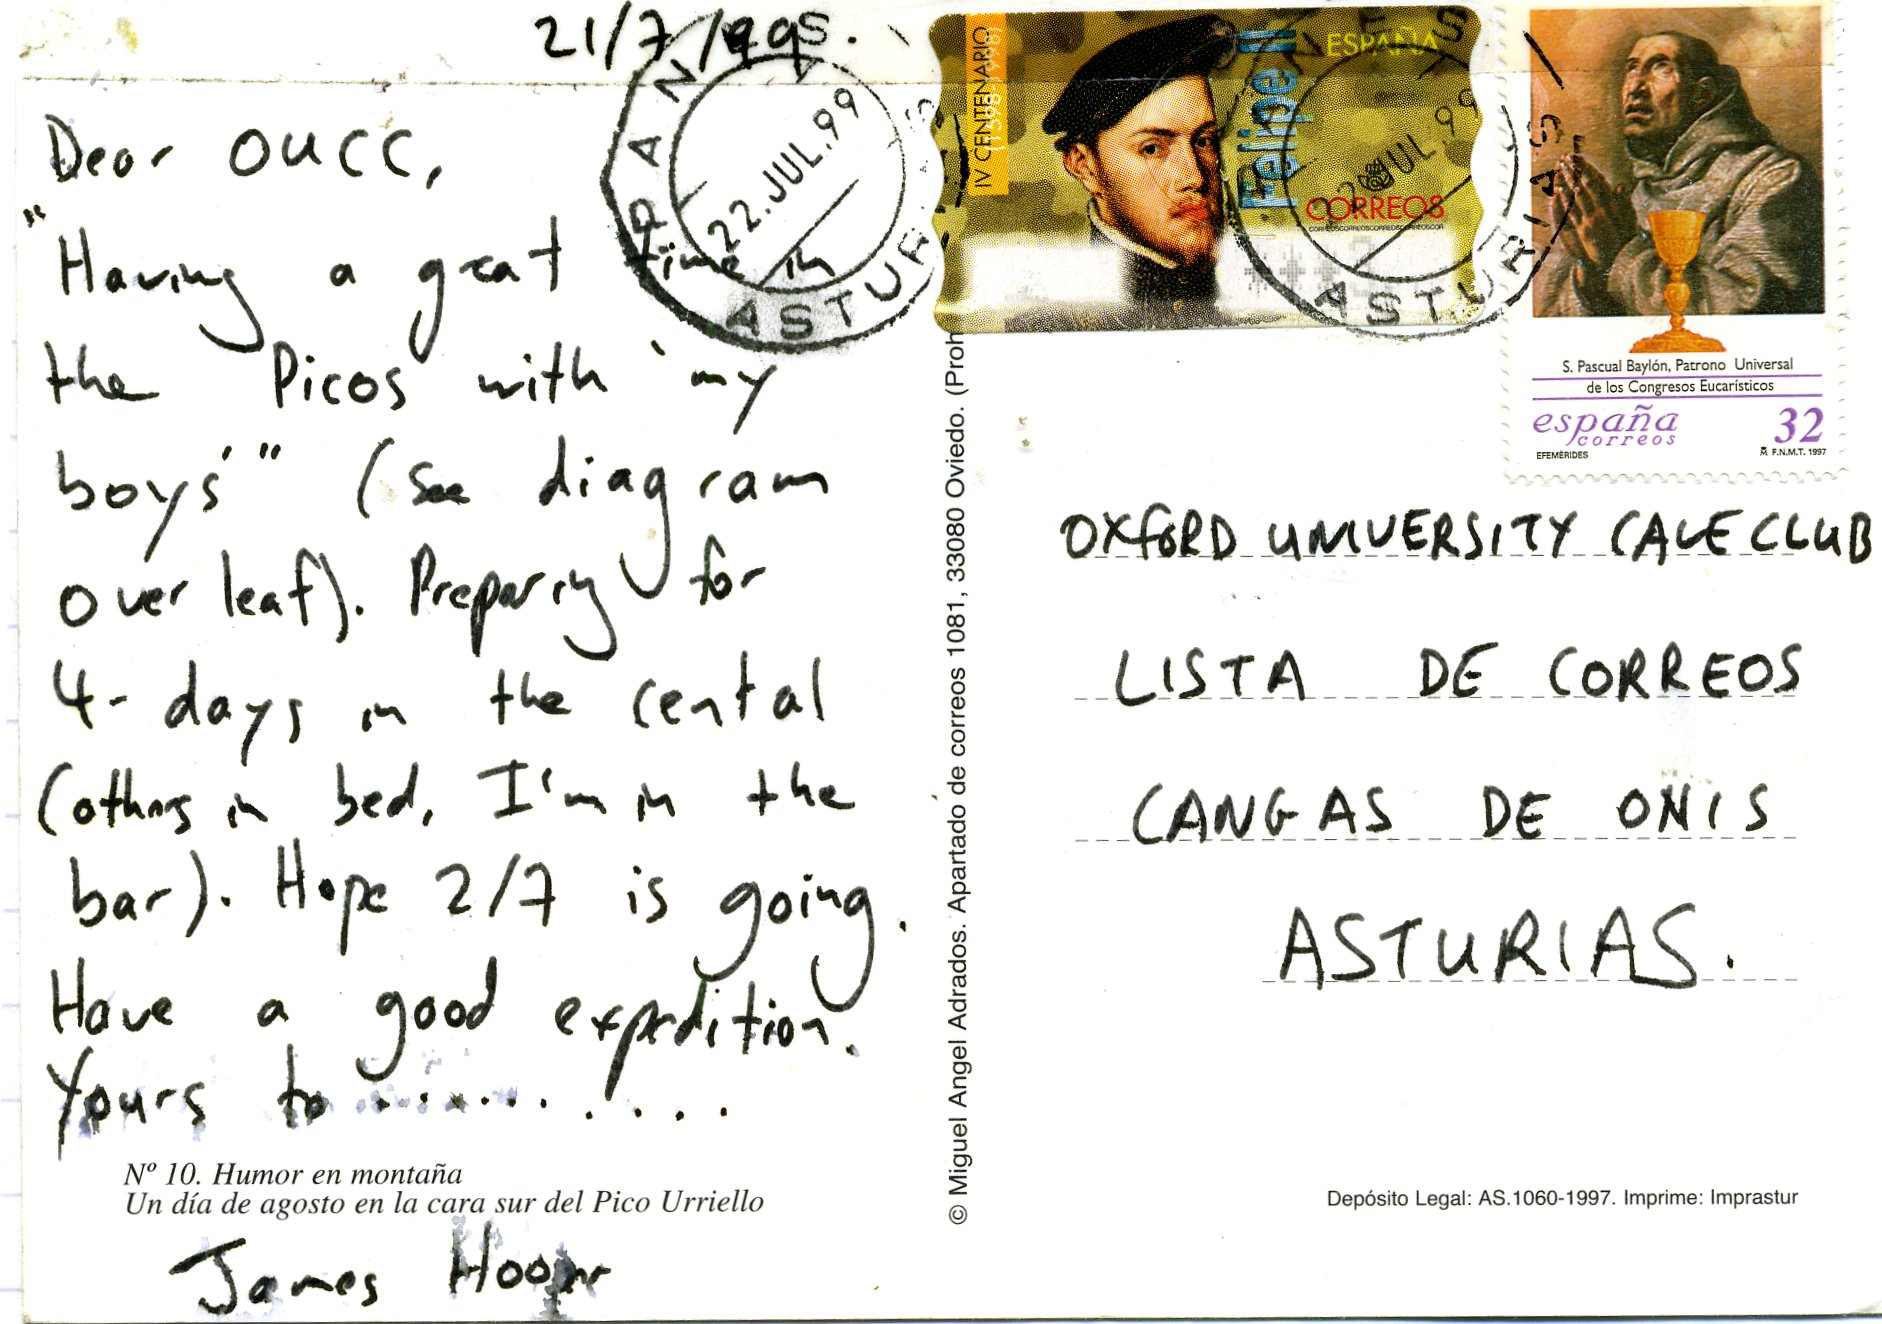 21/7/99.
Dear OUCC,
"Having a great time in
the Picos with 'my
boys'" (see diagram
over leaf). Preparing for
4-days in the cental
(others in bed, I'm in the
bar). Hope 2/7 is going.
Have a good expedition.
Yours to ..........
Nº 10. Humor en montaña
Un día de agosto en la cara sur del Pico Urriello
James Hooper
© Miguel Angel Adrados. Apartado de correos 1081, 33080 Oviedo. (Proh
22.JUL.99
ASTURIAS
IV CENTENARIO
(1598-1998)
Felipe II
ESPAÑA
CORREOS
22.JUL.99
ASTURIAS
S. Pascual Baylón, Patrono Universal
de los Congresos Eucarísticos
españa
correos
32
EFEMÉRIDES
F.N.M.T. 1997
OXFORD UNIVERSITY CAVE CLUB
LISTA DE CORREOS
CANGAS DE ONIS
ASTURIAS.
Depósito Legal: AS.1060-1997. Imprime: Imprastur